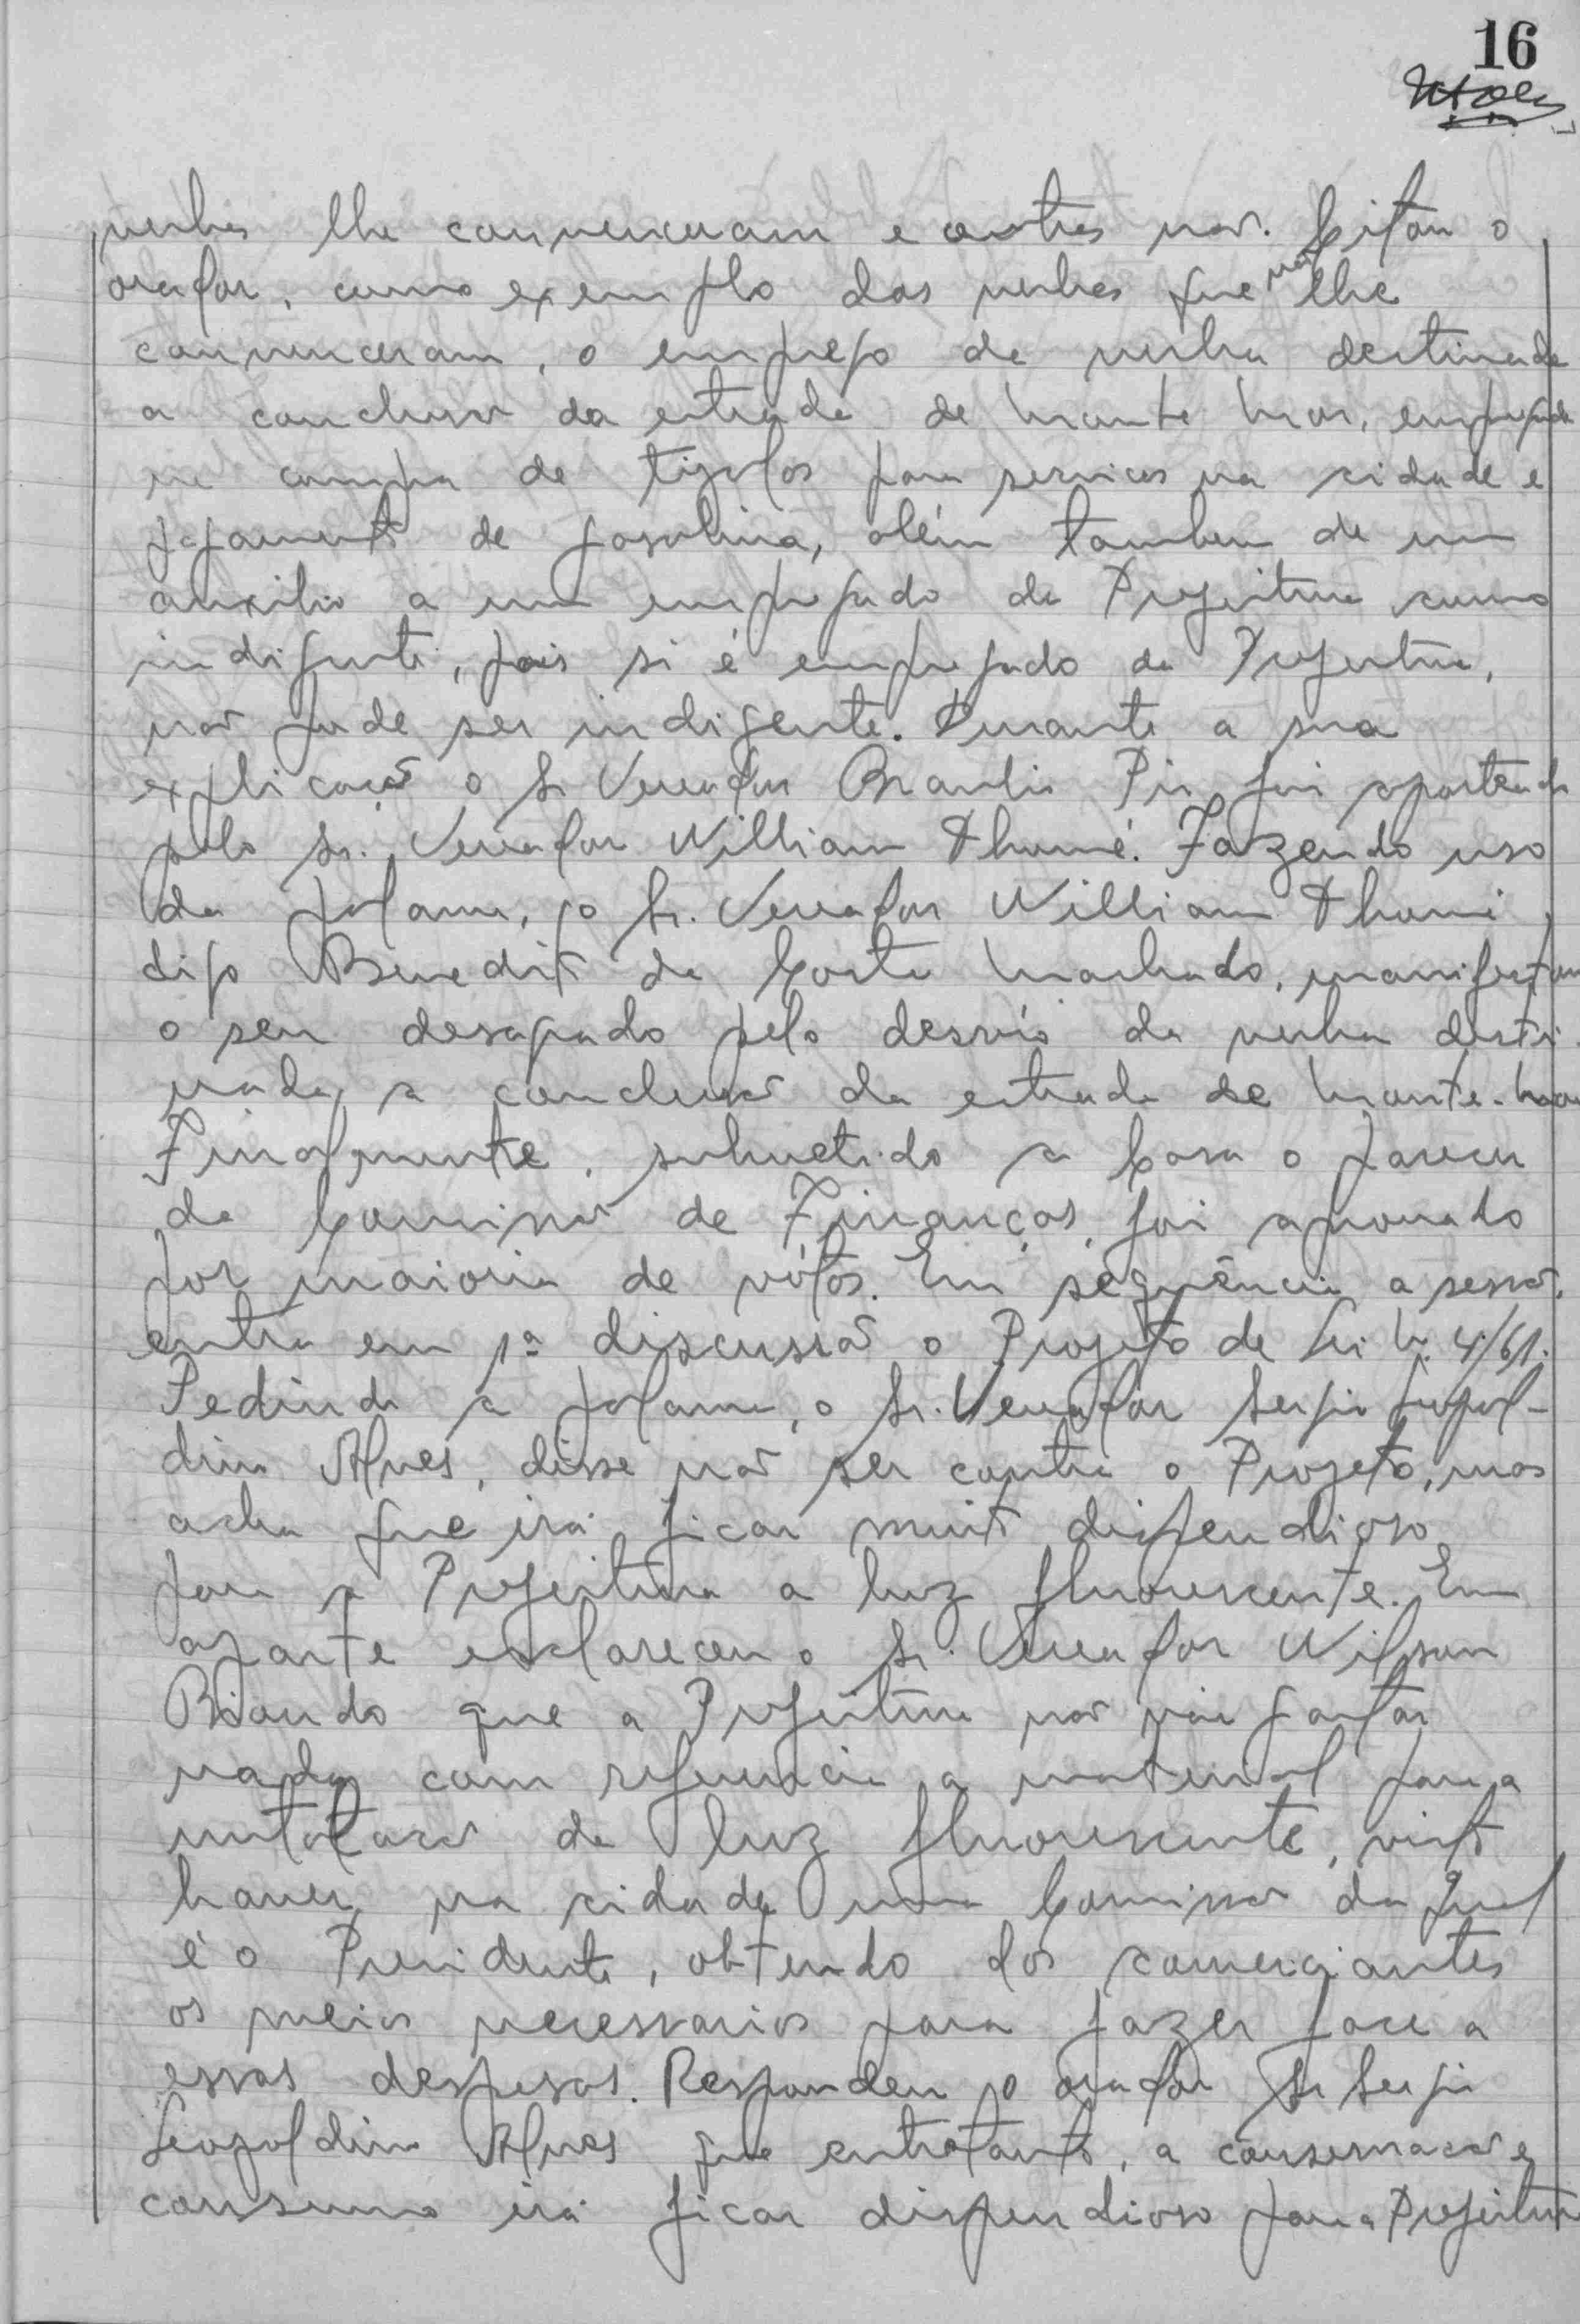 16
verbas lhe convenceram e outras não. Citou o
orador, como exemplo das verbas que não lhe
convenceram, o emprego da verba destinada
a conclusão da estrada de Monte Mor, empregada
na compra de tijolos para serviços na cidade e
pagamento de gasolina, além tambem de um
auxilio a um empregado da Prefeitura como
indigente, pois si é empregado da Prefeitura,
não pode ser indigente. Durante a sua
explicação o Sr Vereador Braulio Pio foi aparteado
pelo Sr. Vereador William Thomé. Fazendo uso
da palavra, o Sr. Vereador William Thomé
digo Benedito da Costa Machado, manifestou
o seu desagrado pelo desvio da verba desti-
nada a conclusão da estrada de Monte-Mor
Finalmente, submetido a Casa o parecer
da Comissão de Finanças, foi aprovado
por maioria de vótos. Em seqüência a sessão,
entra em 1ª discussão o Projeto de Lei N. 4/61.
Pedindo a palavra, o Sr. Vereador Sergio Leopol-
dino Alves, disse não ser contra o Projeto, mas
acha que irá ficar muito dispendioso
para a Prefeitura a luz fluorescente. Em
aparte esclareceu o Sr. Vereador Wilson
Biondo que a Prefeitura não vai gastar
nada com referencia a material para a
instalação da luz fluorescente, visto
haver na cidade uma Comissão da qual
é o Presidente, obtendo dos comerciantes
os meios necessarios para fazer face a
essas despesas. Respondeu o orador Sr Sergio
Leopoldino Alves que entretanto, a conservação e
consumo irá ficar dispendioso para a Prefeitura